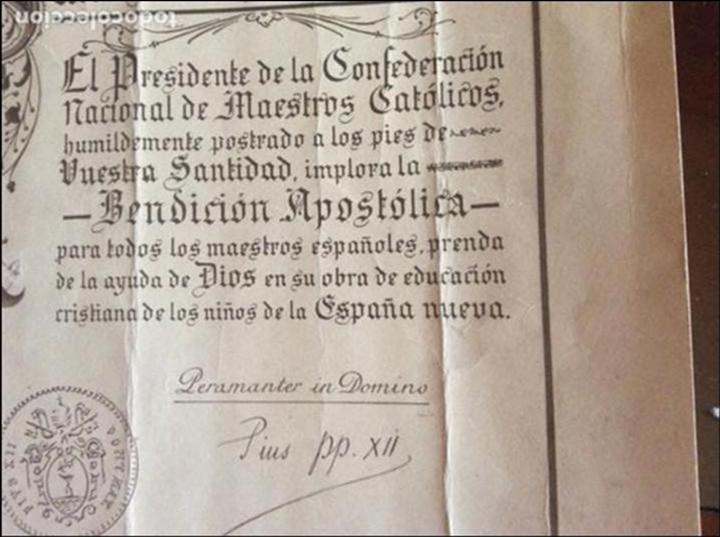 todocoleccion
El Presidente de la Confederación
Nacional de Maestros Católicos,
humildemente postrado a los pies de
Vuestra Santidad, implora la
— Bendición Apostólica —
para todos los maestros españoles, prenda
de la ayuda de Dios en su obra de educación
cristiana de los niños de la España nueva.
Peramanter in Domino
Pius pp. XII
PIVS XII PONT MAX